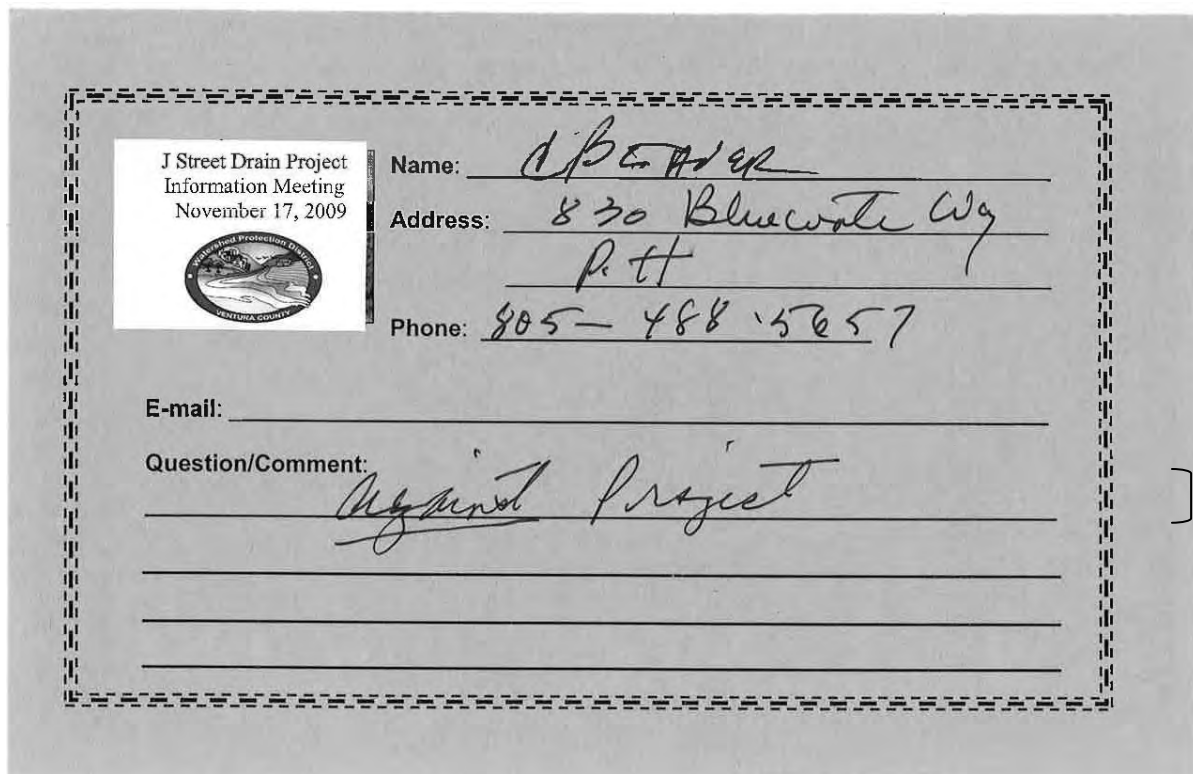 J Street Drain Project
Information Meeting
November 17, 2009
Watershed Protection District
VENTURA COUNTY
Name:
Address: 830 Bluewate Way
P.H
Phone: 805-488-5657
E-mail:
Question/Comment:
Against Project